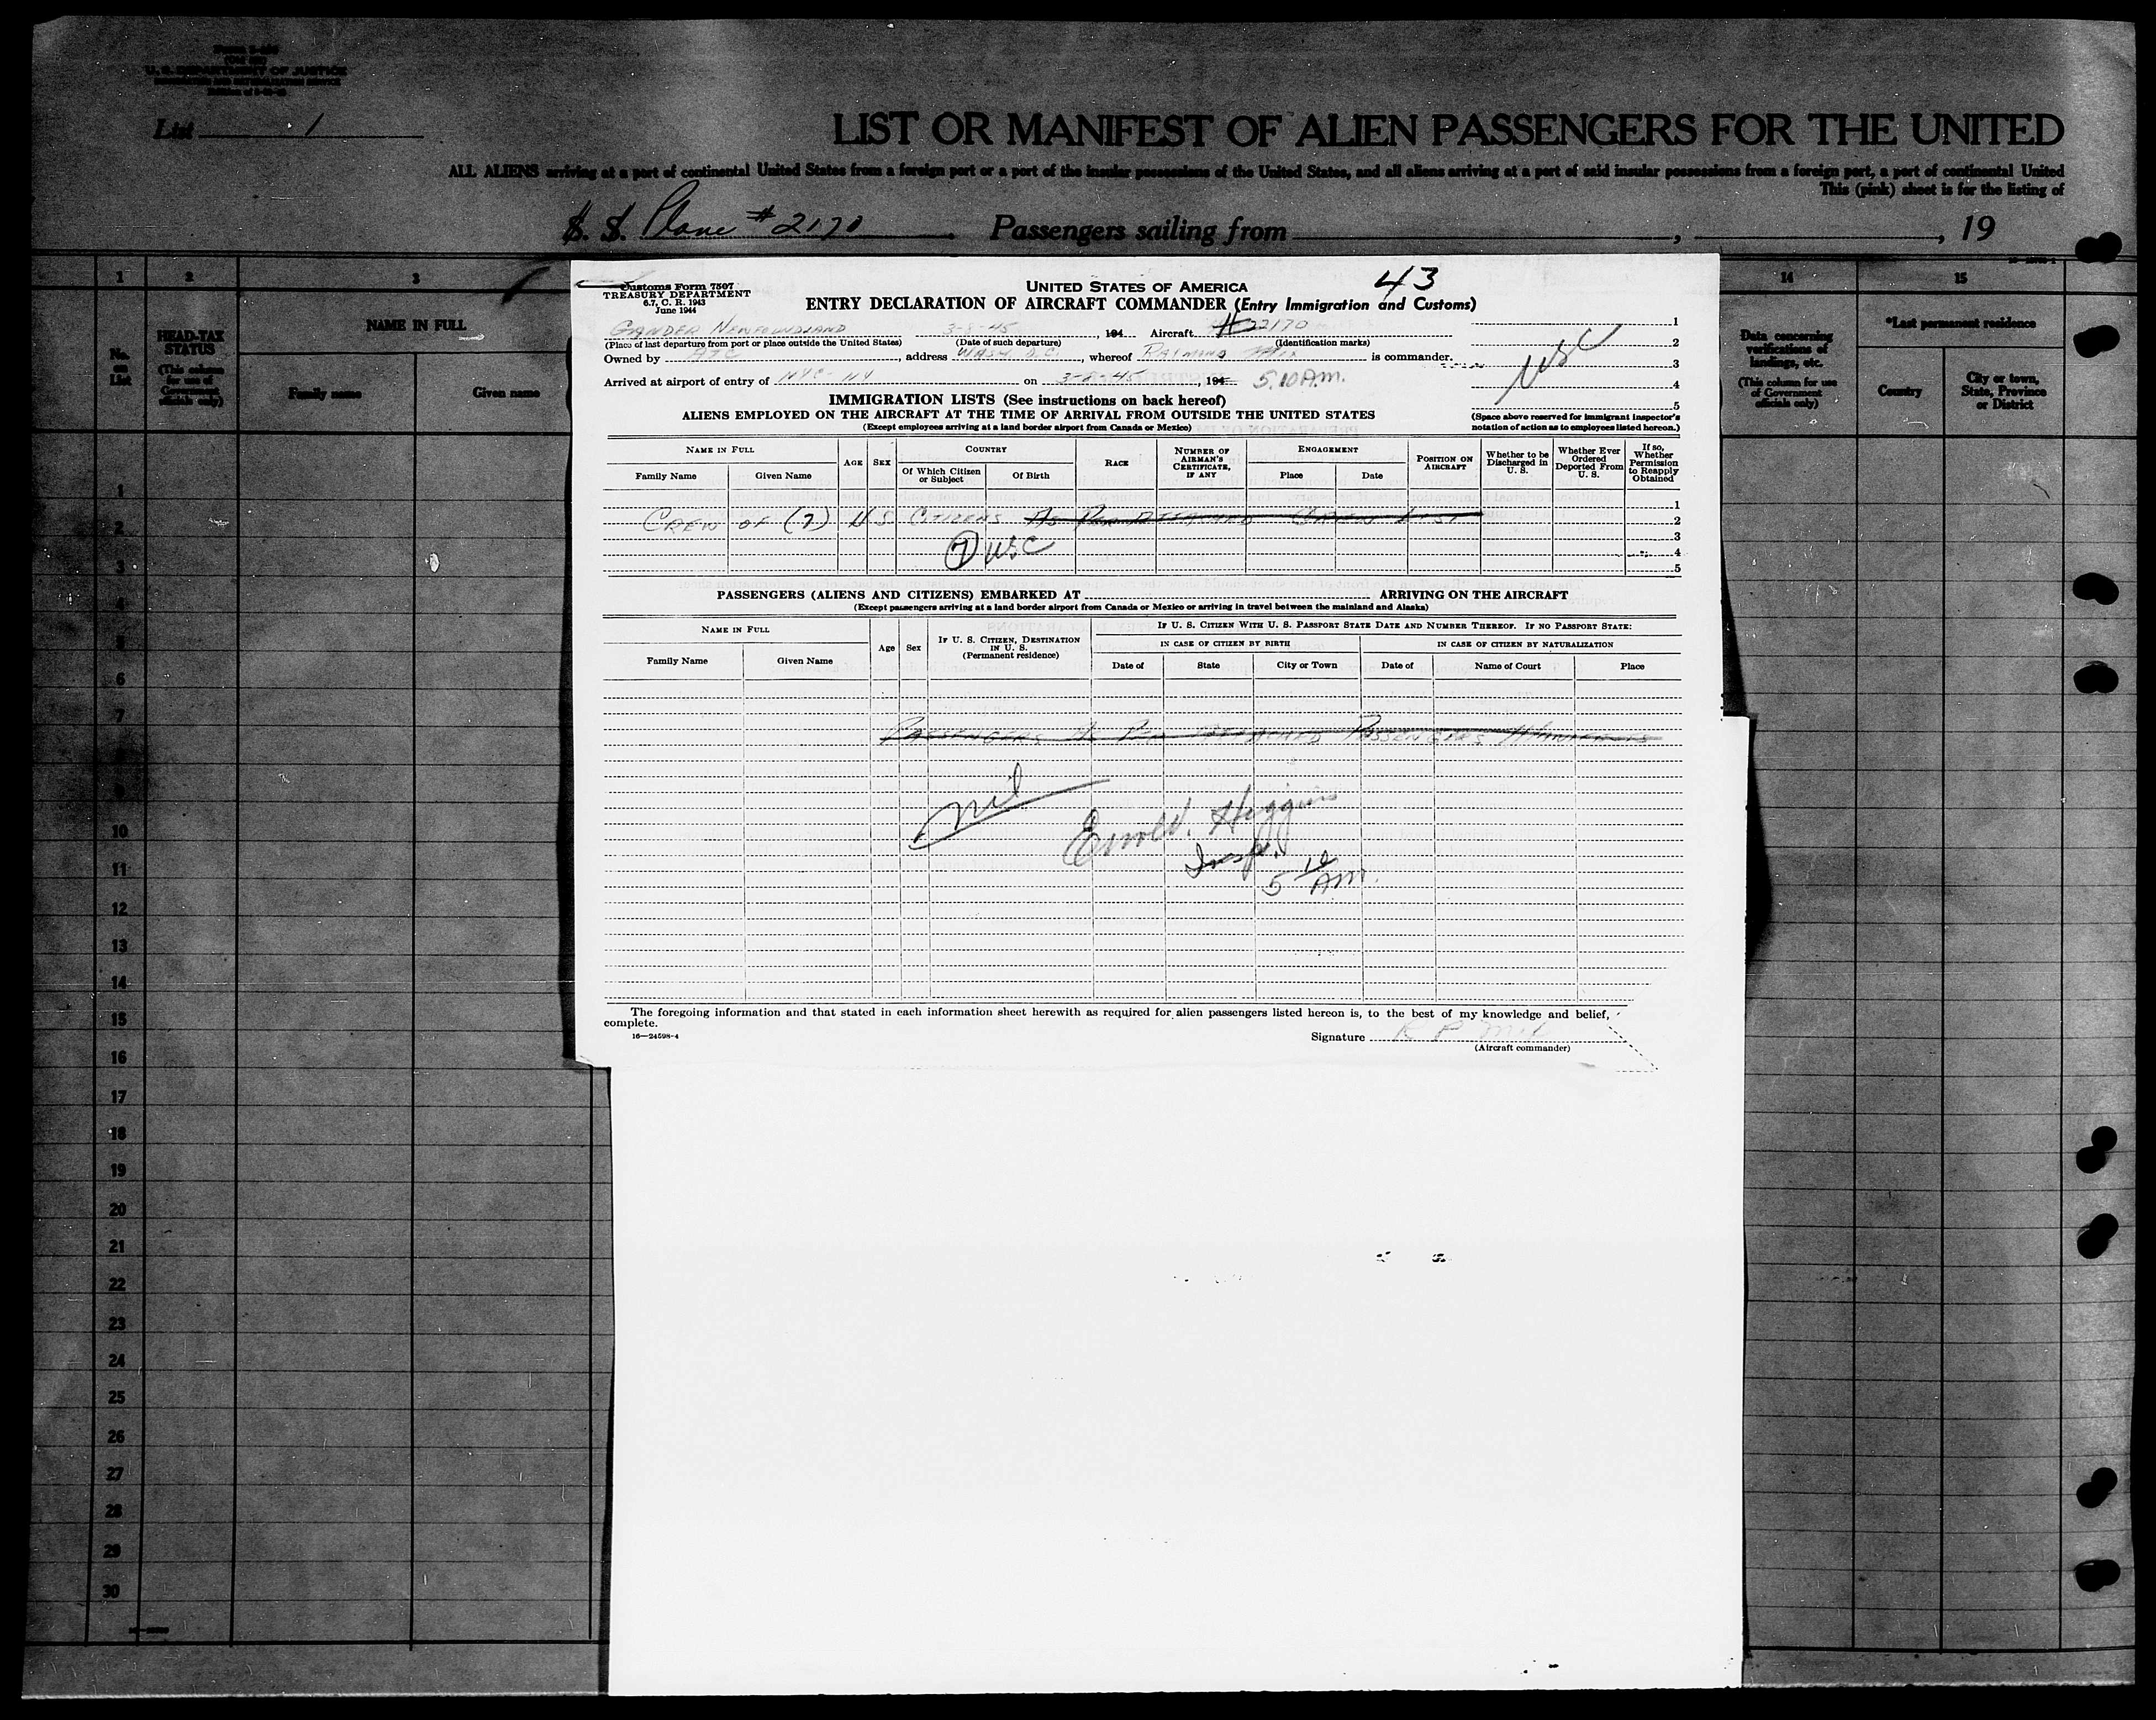 U. S. DEPARTMENT OF JUSTICE
List 1
LIST OR MANIFEST OF ALIEN PASSENGERS FOR THE UNITED
ALL ALIENS arriving at a port of continental United States from a foreign port or a port of the insular possessions of the United States, and all aliens arriving at a port of said insular possessions from a foreign port, a port of continental United
This (pink) sheet is for the listing of
S. S. Plane # 2170 Passengers sailing from , , 19
1 2 3 14 15
No. on List
HEAD-TAX STATUS
(This column for use of Government officials only)
NAME IN FULL
Family name Given name
Data concerning verifications of landings, etc.
(This column for use of Government officials only)
*Last permanent residence
Country
City or town, State, Province or District
1
2
3
4
5
6
7
8
9
10
11
12
13
14
15
16
17
18
19
20
21
22
23
24
25
26
27
28
29
30
Customs Form 7507
TREASURY DEPARTMENT
6.7, C. R. 1943
June 1944
UNITED STATES OF AMERICA 43
ENTRY DECLARATION OF AIRCRAFT COMMANDER (Entry Immigration and Customs)
GANDER NEWFOUNDLAND 3-8-45, 194 Aircraft 2170
(Place of last departure from port or place outside the United States) (Date of such departure) (Identification marks)
Owned by ATC, address WASH D.C., whereof RAYMOND is commander.
Arrived at airport of entry of NYC- NY on 3-8-45, 194 5.10 A.M.
1
2
3
4
5
USC
(Space above reserved for immigrant inspector's notation of action as to employees listed hereon.)
IMMIGRATION LISTS (See instructions on back hereof)
ALIENS EMPLOYED ON THE AIRCRAFT AT THE TIME OF ARRIVAL FROM OUTSIDE THE UNITED STATES
(Except employees arriving at a land border airport from Canada or Mexico)
NAME IN FULL
Family Name Given Name
AGE SEX
COUNTRY
Of Which Citizen or Subject Of Birth
RACE
NUMBER OF AIRMAN'S CERTIFICATE, IF ANY
ENGAGEMENT
Place Date
POSITION ON AIRCRAFT
Whether to be Discharged in U. S.
Whether Ever Ordered Deported From U. S.
If so, Whether Permission to Reapply Obtained
1
CREW OF (7) U S CITIZENS AS PER ATTACHED CREW LIST 2
3
7 USC 4
5
PASSENGERS (ALIENS AND CITIZENS) EMBARKED AT ARRIVING ON THE AIRCRAFT
(Except passengers arriving at a land border airport from Canada or Mexico or arriving in travel between the mainland and Alaska)
NAME IN FULL
Family Name Given Name
Age Sex
IF U. S. CITIZEN, DESTINATION IN U. S.
(Permanent residence)
IF U. S. CITIZEN WITH U. S. PASSPORT STATE DATE AND NUMBER THEREOF. IF NO PASSPORT STATE:
IN CASE OF CITIZEN BY BIRTH IN CASE OF CITIZEN BY NATURALIZATION
Date of State City or Town Date of Name of Court Place
PASSENGERS AS PER ATTACHED PASSENGERS MANIFESTS
nil
Higgins
Insp.
5 10 AM.
The foregoing information and that stated in each information sheet herewith as required for alien passengers listed hereon is, to the best of my knowledge and belief,
complete.
16—24598-4
Signature
(Aircraft commander)